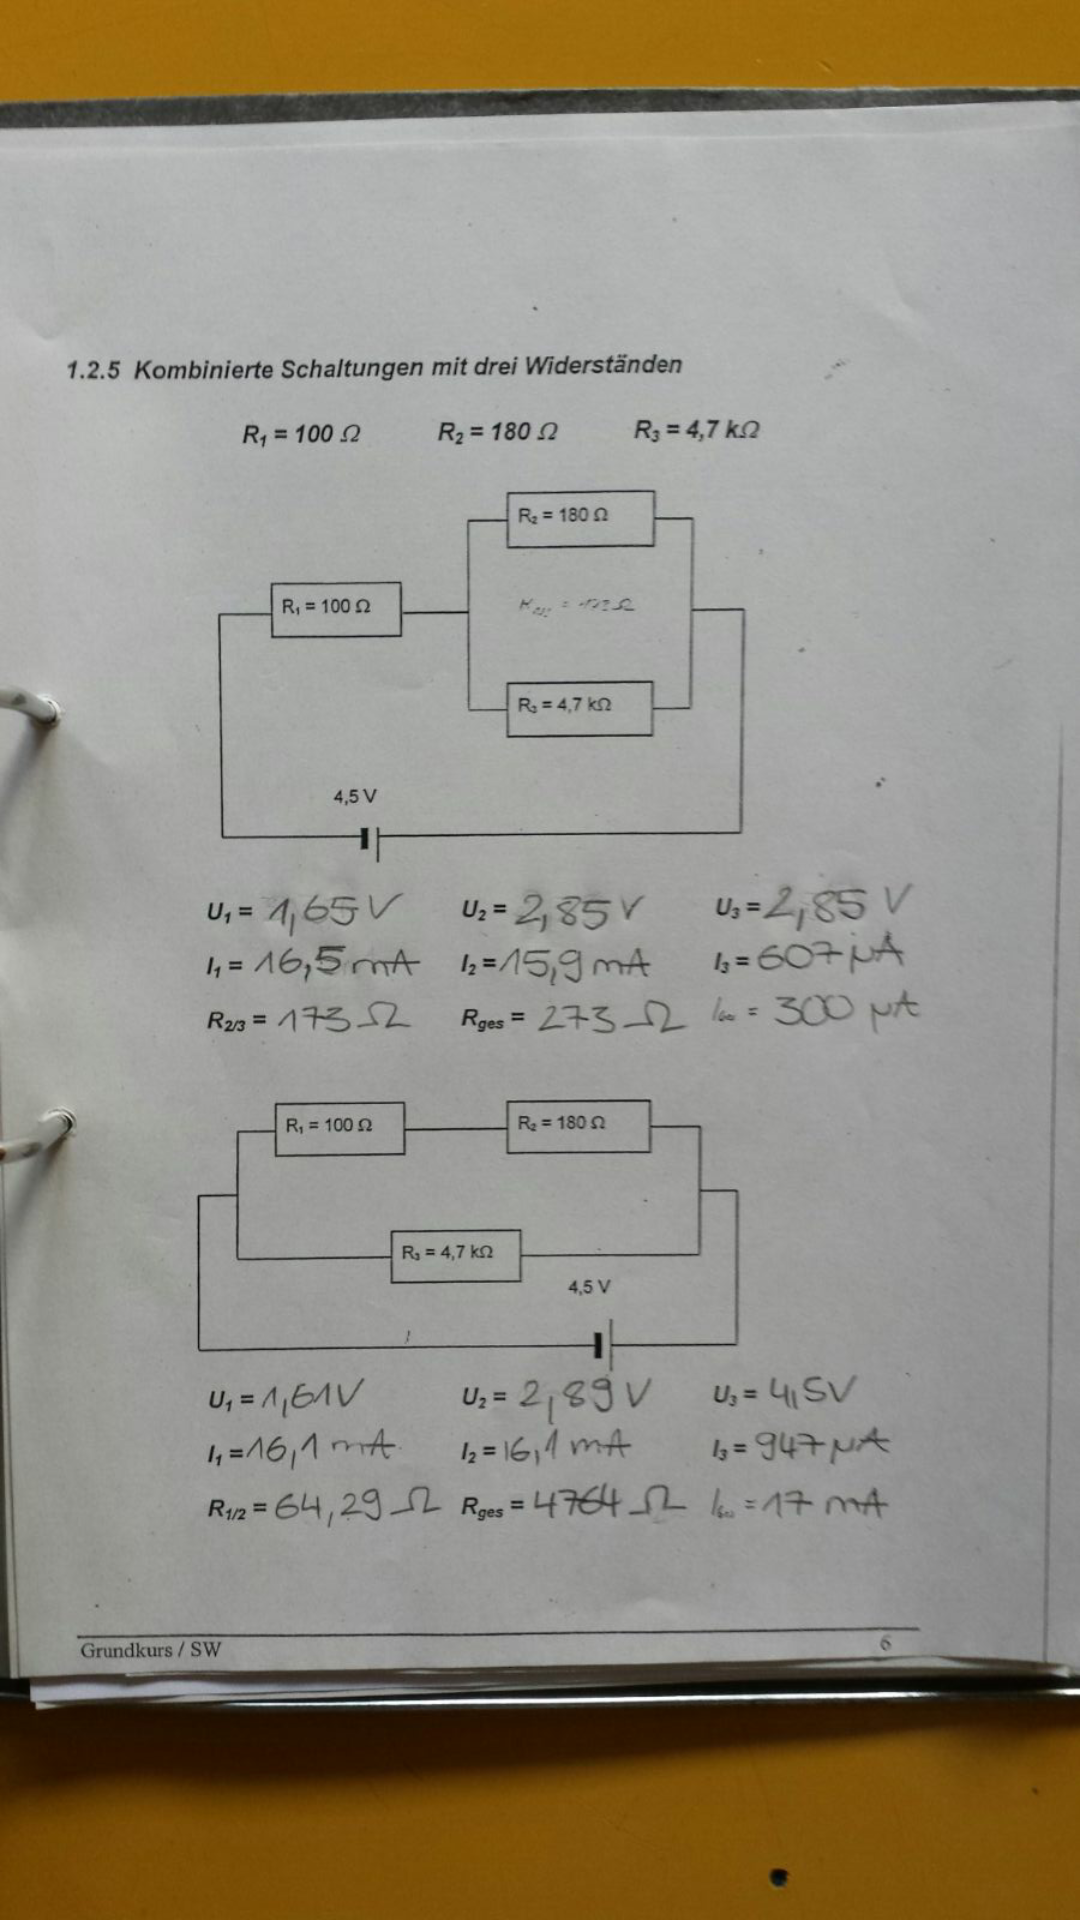 1.2.5 Kombinierte Schaltungen mit drei Widerständen
R₁ = 100 Ω R₂ = 180 Ω R₃ = 4,7 kΩ
R₂ = 180 Ω
R₁ = 100 Ω
= 173 Ω
R₃ = 4,7 kΩ
4,5 V
U₁ = 1,65 V U₂ = 2,85 V U₃ = 2,85 V
I₁ = 16,5 mA I₂ = 15,9 mA I₃ = 607 µA
R₂/₃ = 173 Ω Rges = 273 Ω Iges = 300 µA
R₁ = 100 Ω R₂ = 180 Ω
R₃ = 4,7 kΩ
4,5 V
U₁ = 1,61 V U₂ = 2,89 V U₃ = 4,5 V
I₁ = 16,1 mA I₂ = 16,1 mA I₃ = 947 µA
R₁/₂ = 64,29 Ω Rges = 4764 Ω Iges = 17 mA
Grundkurs / SW 6